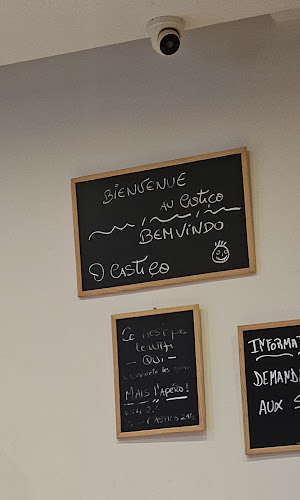 BIENVENUE
AU CASTIÇO
BEMVINDO
O CASTIÇO
Ce n'est pas
le wifi
- QUI -
MAIS l'APÉRO!
INFORMAT
DEMAND
AUX S